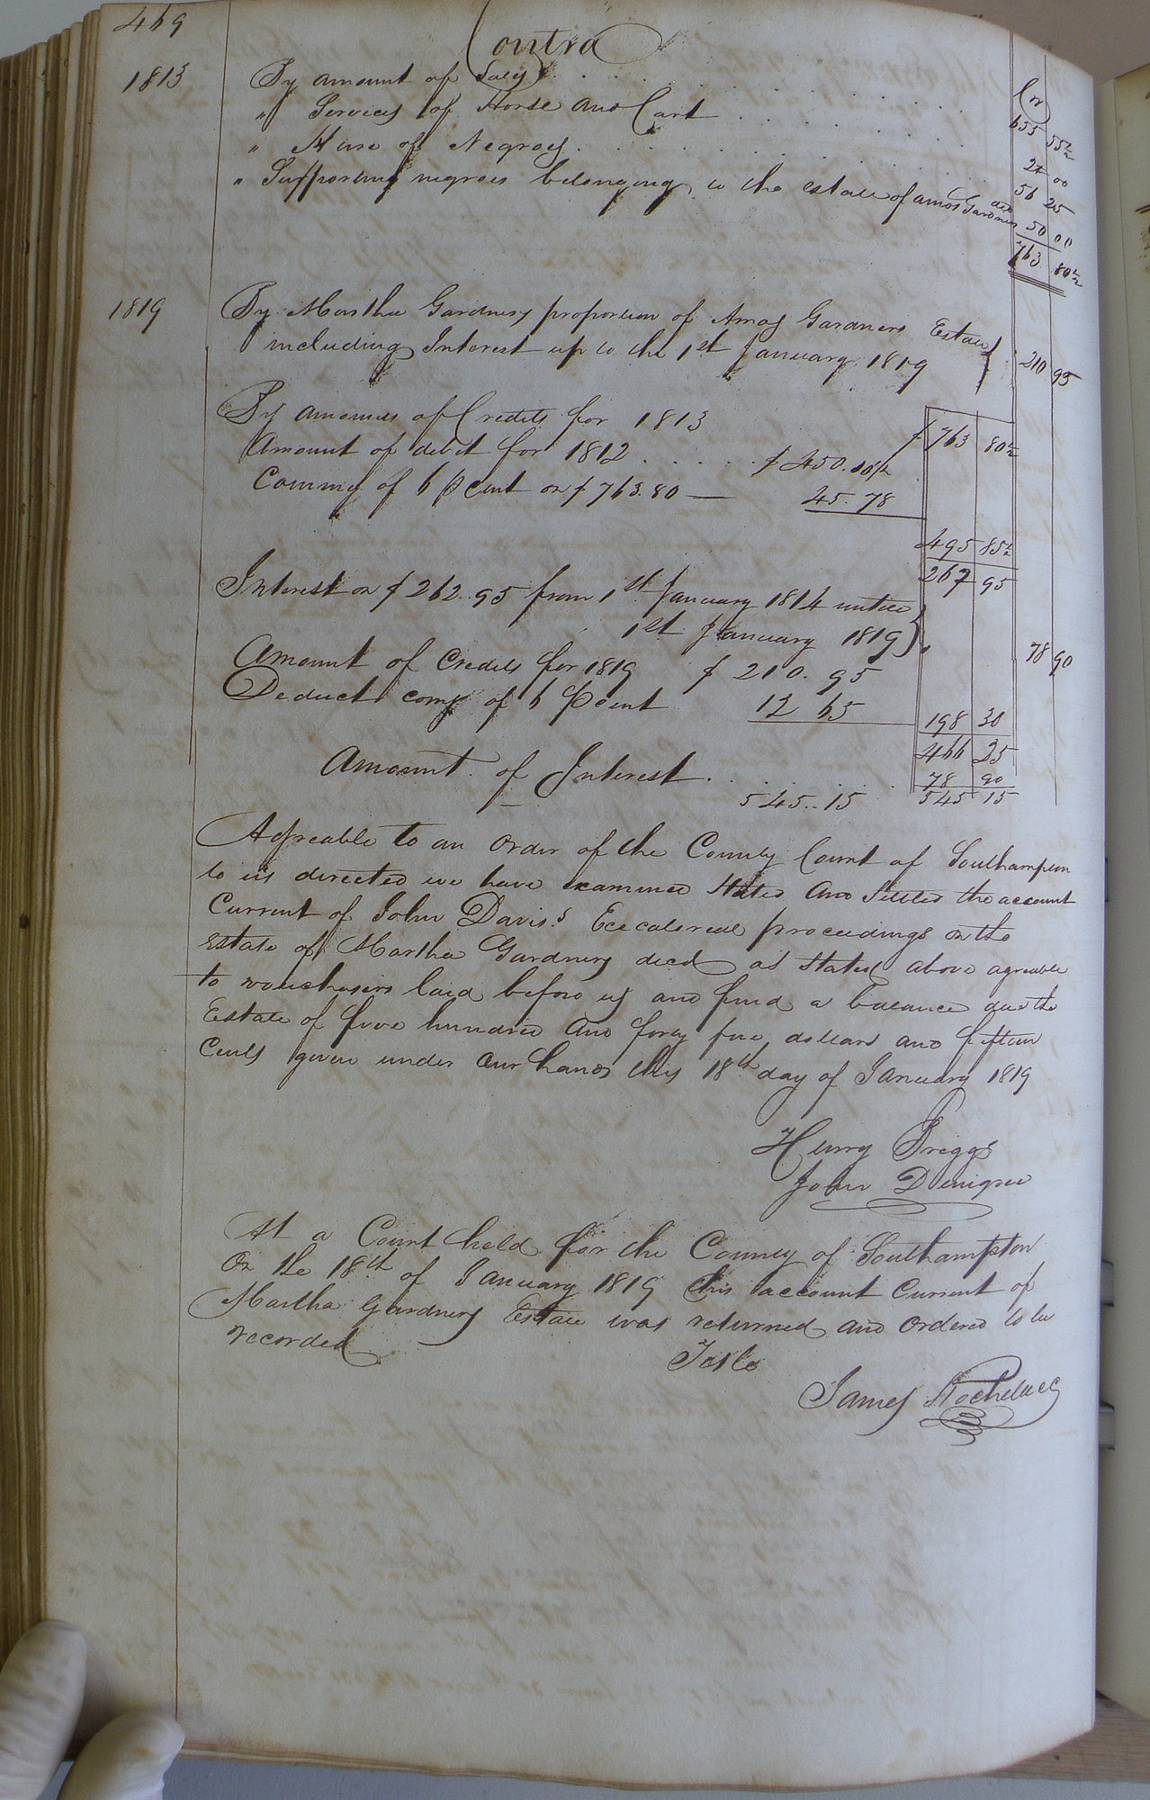 469
Contra
Cr
1813 By amount of Sales . . . . 633 55½
" Services of Horse and Cart . . . . 24 00
" Hire of Negroes . . . . 56 25
" Supporting negroes belonging to the estate of Amos Gardner decd 50 00
763 80½
1819 By Martha Gardners proportion of Amos Gardners Estate
including Interest up to the 1st January 1819 210 95
By amounts of Credits for 1813 $ 763 80½
Amount of debit for 1812 . . . . . $ 450. 10½
Commy of 6 p Cent on $ 763.80 — 45. 78
495 85½
267 95
Interest on $ 262.95 from 1st January 1814 untill
1st January 1819 78 90
Amount of Credits for 1819 $ 210. 95
Deduct comy of 6 p Cent 12 65 198 30
466 25
Amount of Interest . . . . . 78 90
545.15 545 15
Agreable to an order of the County Court of Southampton
to us directed we have examined Stated and Settled the account
Current of John Davis's proceedings on the
Estate of Martha Gardners decd as Stated above agreable
to laid before us and find a balance due the
Estate of five hundred and forty five dollars and fifteen
Cents given under our hands this 18th day of January 1819
Henry Briggs
John
At a Court held for the County of Southampton
On the 18th of January 1819 this account Current of
Martha Gardners Estate was returned and ordered to be
recorded
Teste
James Rochelle CC